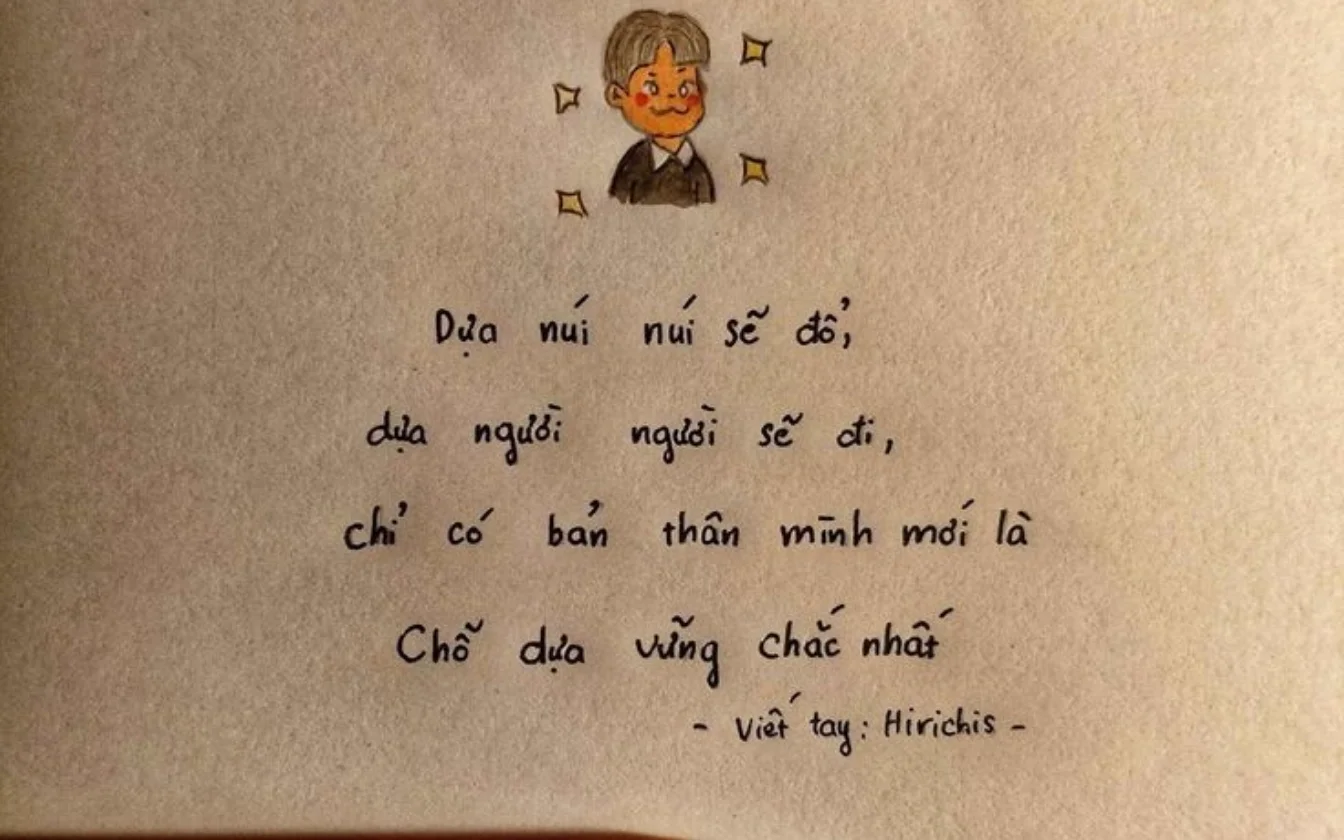 Dựa núi núi sẽ đổ,
dựa người người sẽ đi,
chỉ có bản thân mình mới là
Chỗ dựa vững chắc nhất
- Viết tay: Hirichis -